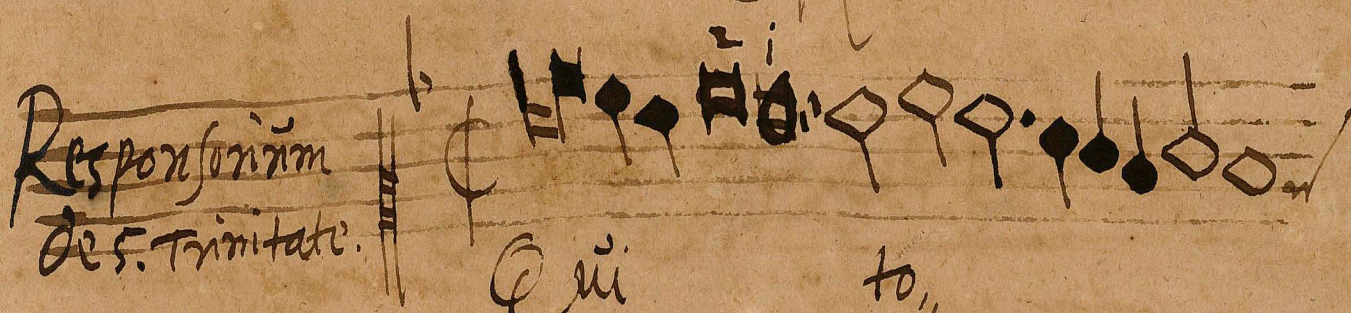 Responsorium
de S. Trinitate.
Qui to,,